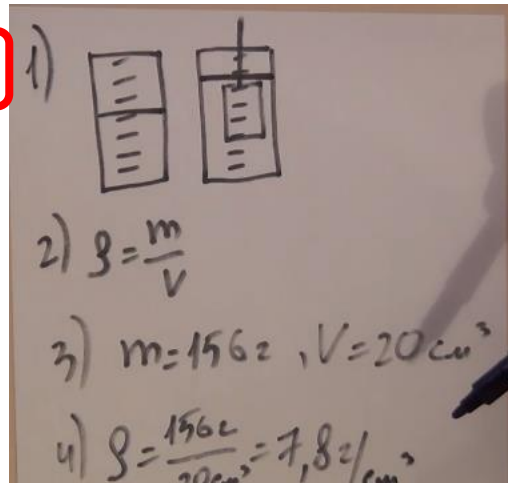 1)
2) ρ = m/V
3) m = 156 г, V = 20 см³
4) ρ = 156г/20см³ = 7,8 г/см³